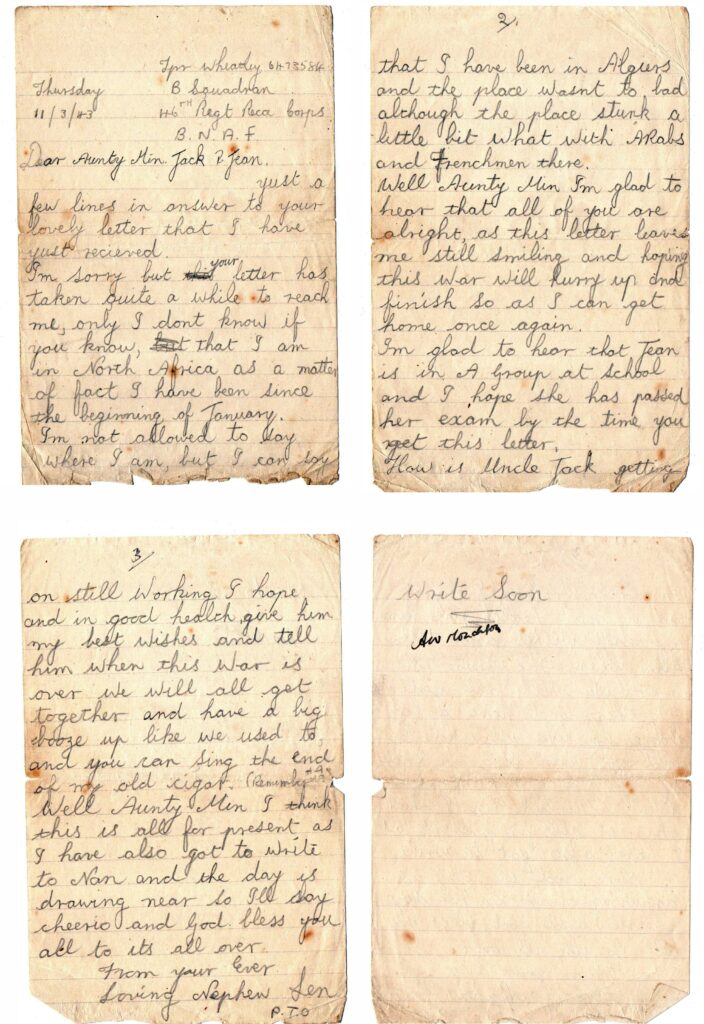 Tpr Wheadey 6473584
Thursday B Squadran
11/3/43 46TH Regt Reca Corps
B.N.A.F
Dear Aunty Min. Jack & Jean.
yust a
few lines in answer to your
lovely letter that I have
yust recieved.
I'm sorry but this your letter has
taken quite a while to reach
me, only I dont know if
you know, but that I am
in North Africa as a matter
of fact I have been since
the beginning of January.
I'm not allowed to say
where I am, but I can say
2/
that I have been in Algiers
and the place wasnt to bad
although the place stunk a
little bit what with ARabs
and Frenchmen there.
Well Aunty Min I'm glad to
hear that all of you are
alright, as this letter leaves
me still smiling and hoping
this War will hurry up and
finish so as I can get
home once again.
I'm glad to hear that Jean
is in A Group at school
and I hope she has passed
her exam by the time you
get this letter.
How is Uncle Jack getting
3/
on still Working I hope
and in good health, give him
my best wishes and tell
him when this War is
over we will all get
together and have a big
booze up like we used to,
and you can sing the end
of my old cigar. (Remember
Well Aunty Min I think
this is all for present as
I have also got to write
to Nan and the day is
drawing near so I'll say
cheerio and God bless you
all to its all over.
From your Ever
Loving Nephew Len
P.T.O
Write Soon